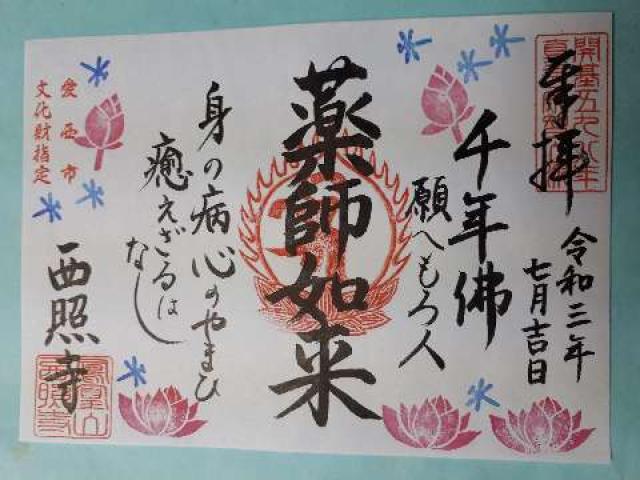 奉拝
令和三年
七月吉日
千年佛
願へもろ人
薬師如来
身の病心のやまひ
癒えざるは
なし
愛西市
文化財指定
西照寺